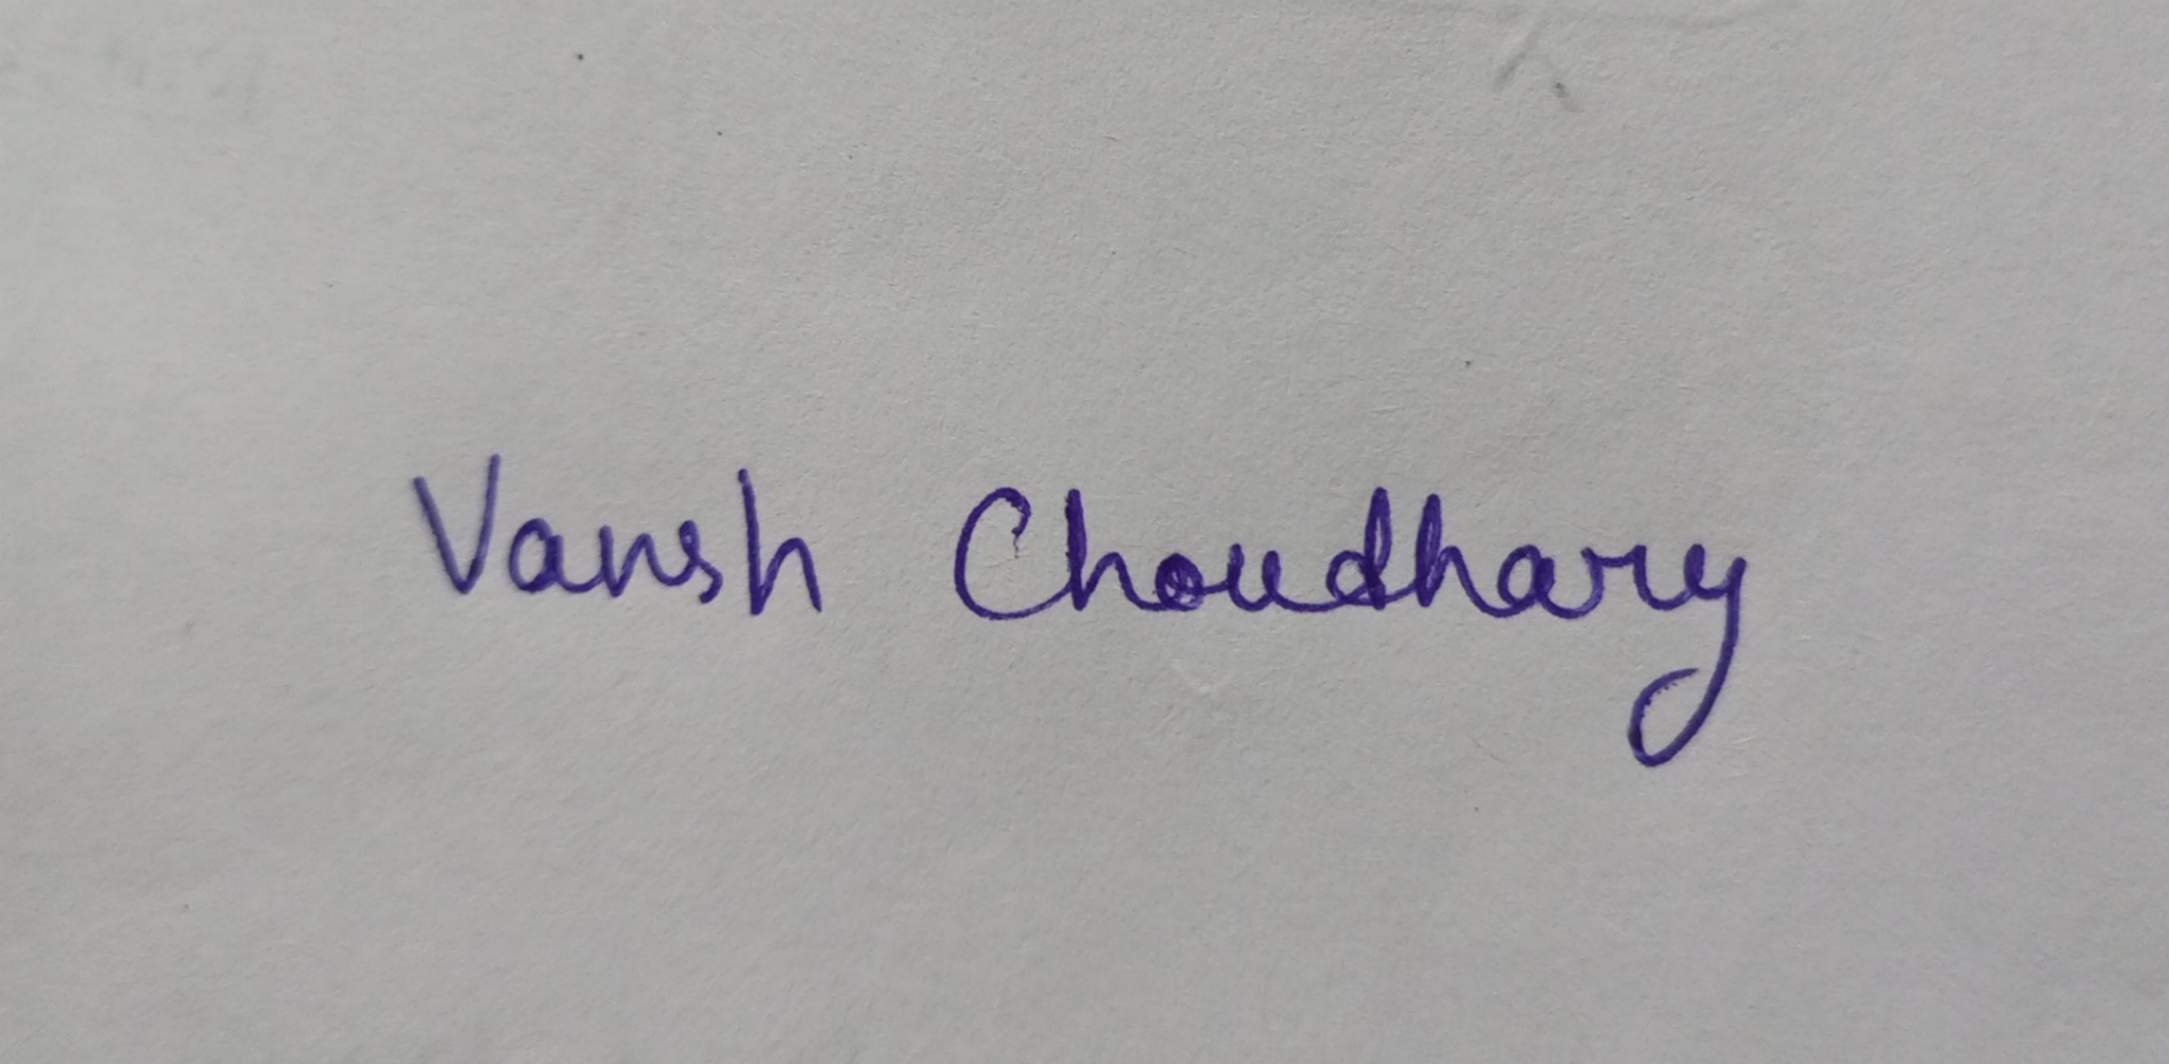 Vansh Choudhary